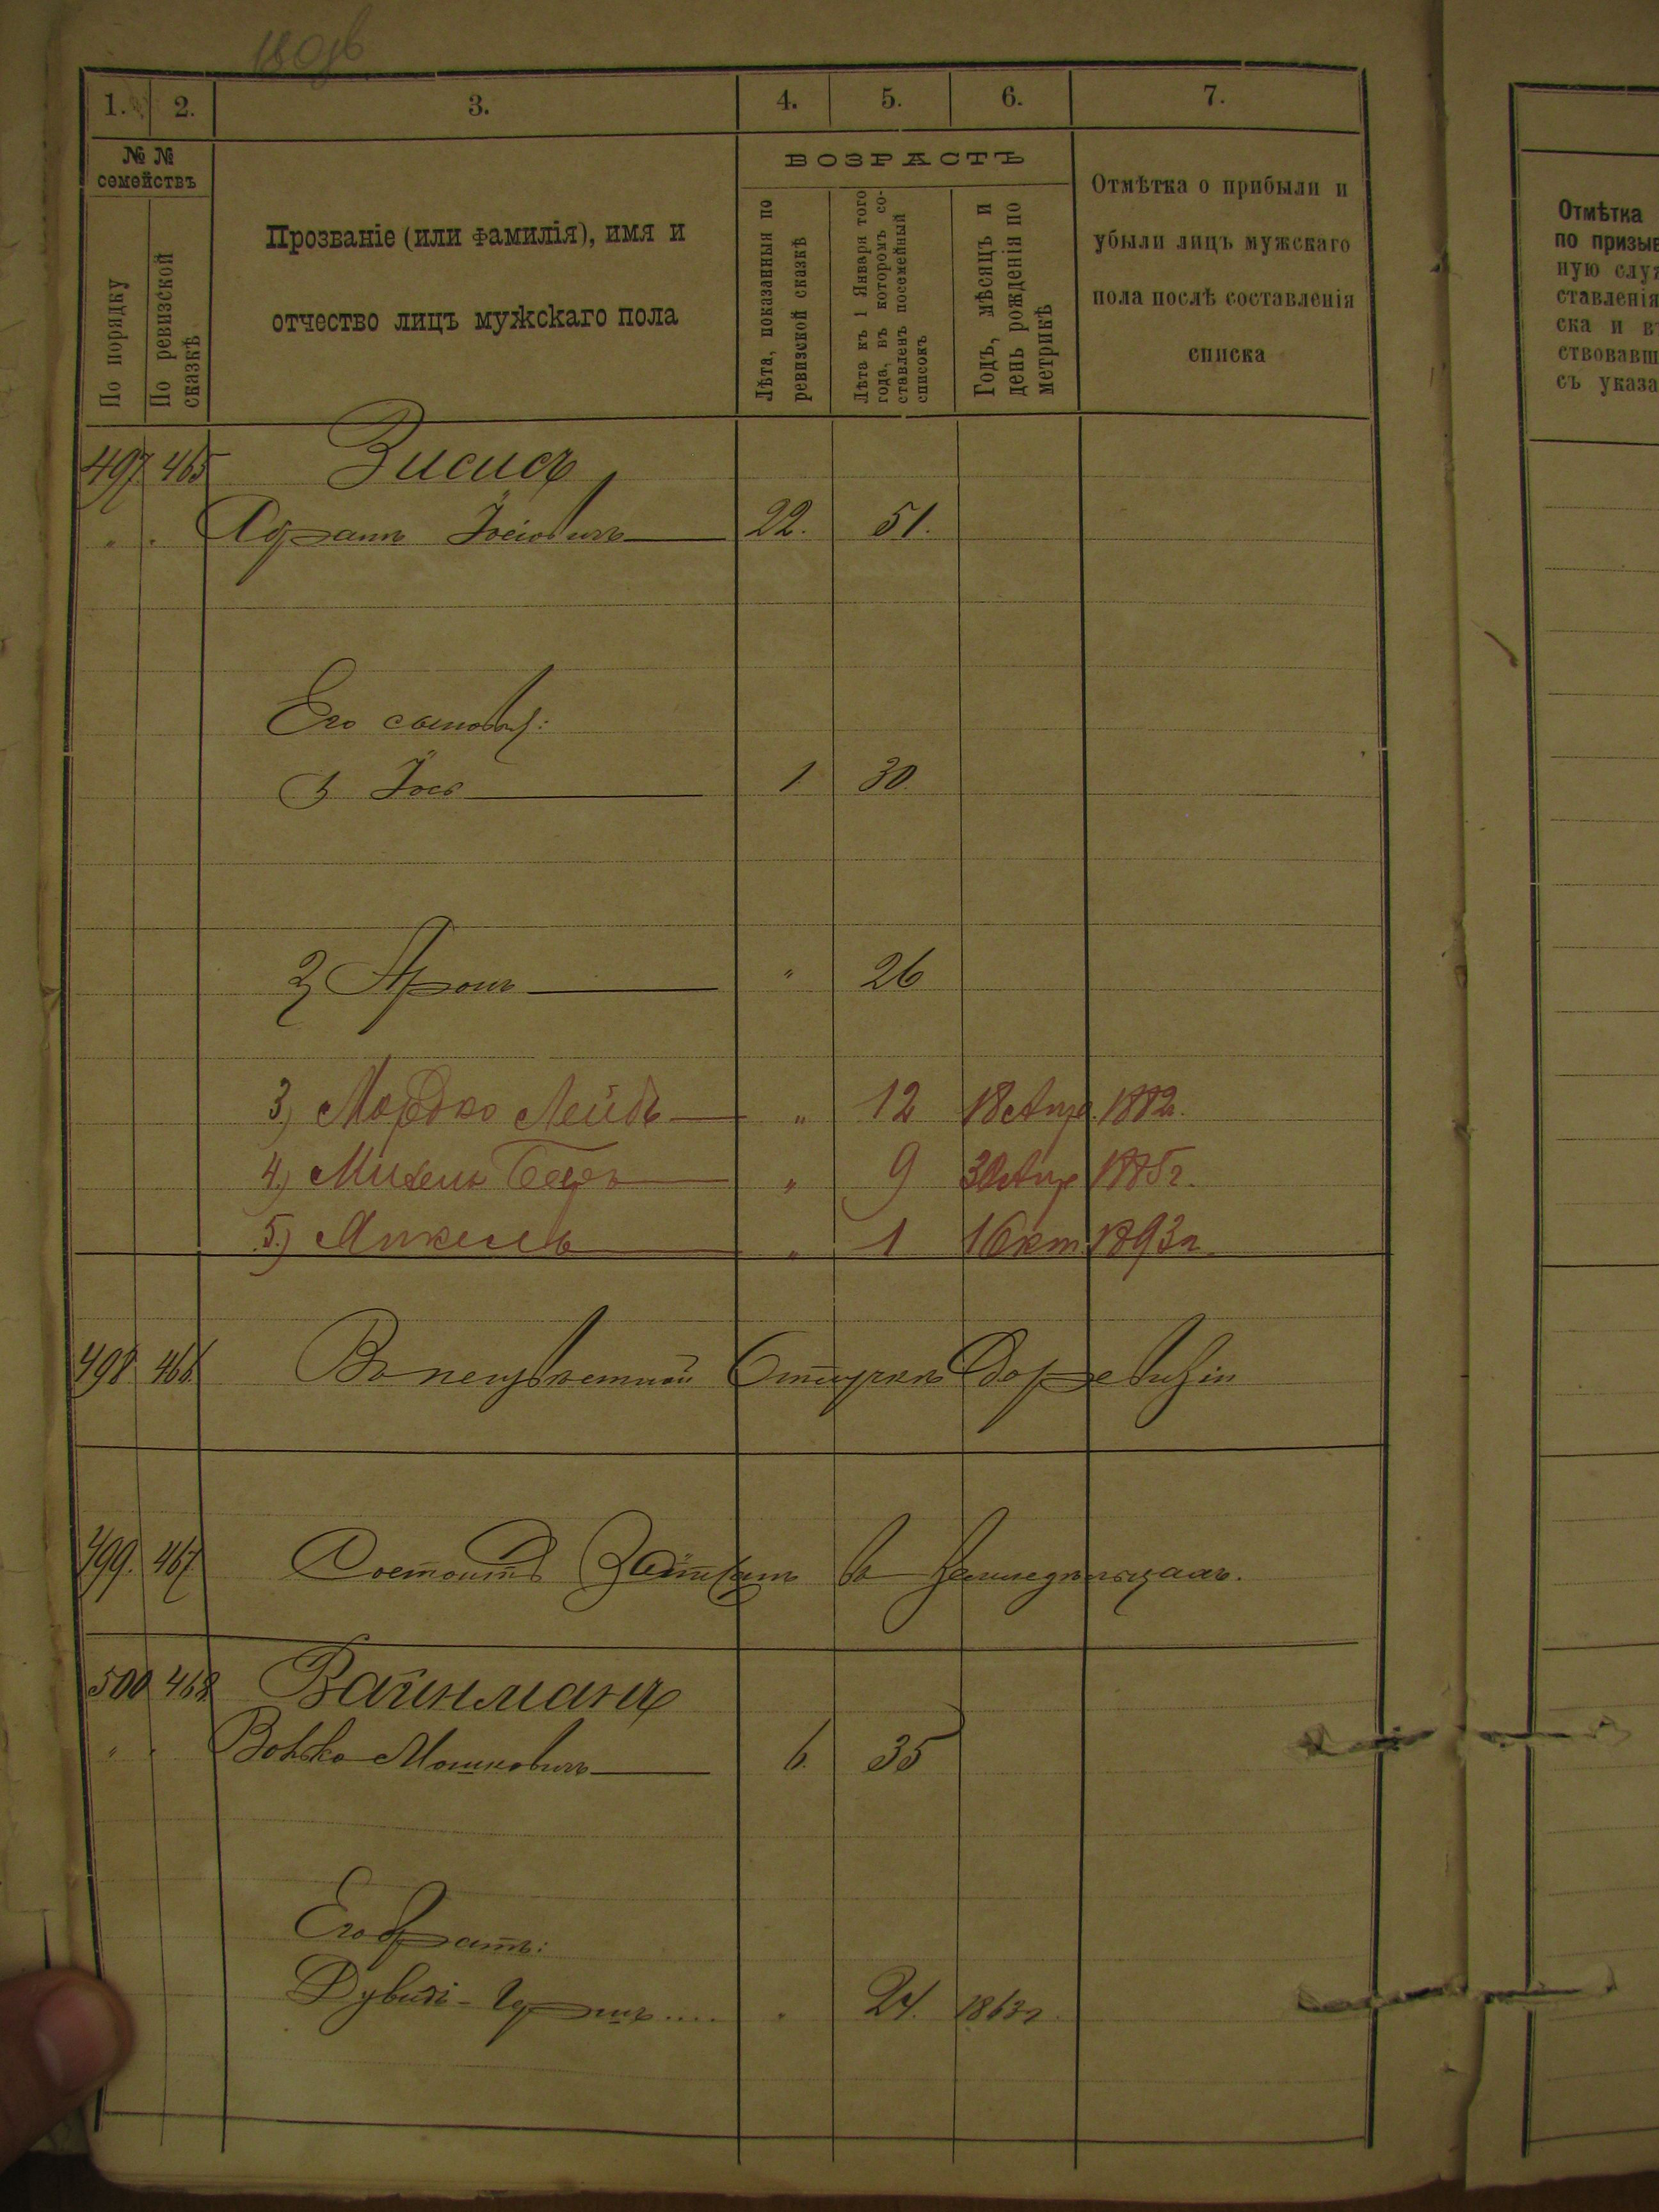 180об
1. 2. 3. 4. 5. 6. 7.
№ №
семействъ
По порядку
По ревизской сказкѣ
Прозваніе (или фамилія), имя и
отчество лицъ мужскаго пола
ВОЗРАСТЪ
Лѣта, показанныя по
ревизской сказкѣ
Лѣта къ 1 Января того
года, въ которомъ со-
ставленъ посемейный
списокъ
Годъ, мѣсяцъ и
день рожденія по
метрикѣ
Отмѣтка о прибыли и
убыли лицъ мужскаго
пола послѣ составленія
списка
497. 465 Зисисъ
" " Абрамъ Іосіовичъ 22. 51.
Его сыновья:
1) Іось 1. 30.
2) Аронъ " 26
3) Мордко Лейбъ " 12 18 Апр. 1882.
4) Михель Беръ " 9 30 Апр 1885 г.
5) Янкель " 1 1 Окт 1893 г.
498 466. Въ неизвѣстной Отлучкѣ до ревизіи
499. 467. Состоитъ въ земледѣльцахъ.
500 468. Вайнманъ
" " Волько Мошковичъ 6. 35
Его братъ:
Дувидъ-Гершъ.... " 24. 1863г.
Отмѣтка
по призыв
ную служ
ставленія
ска и в
ствовавш
съ указа